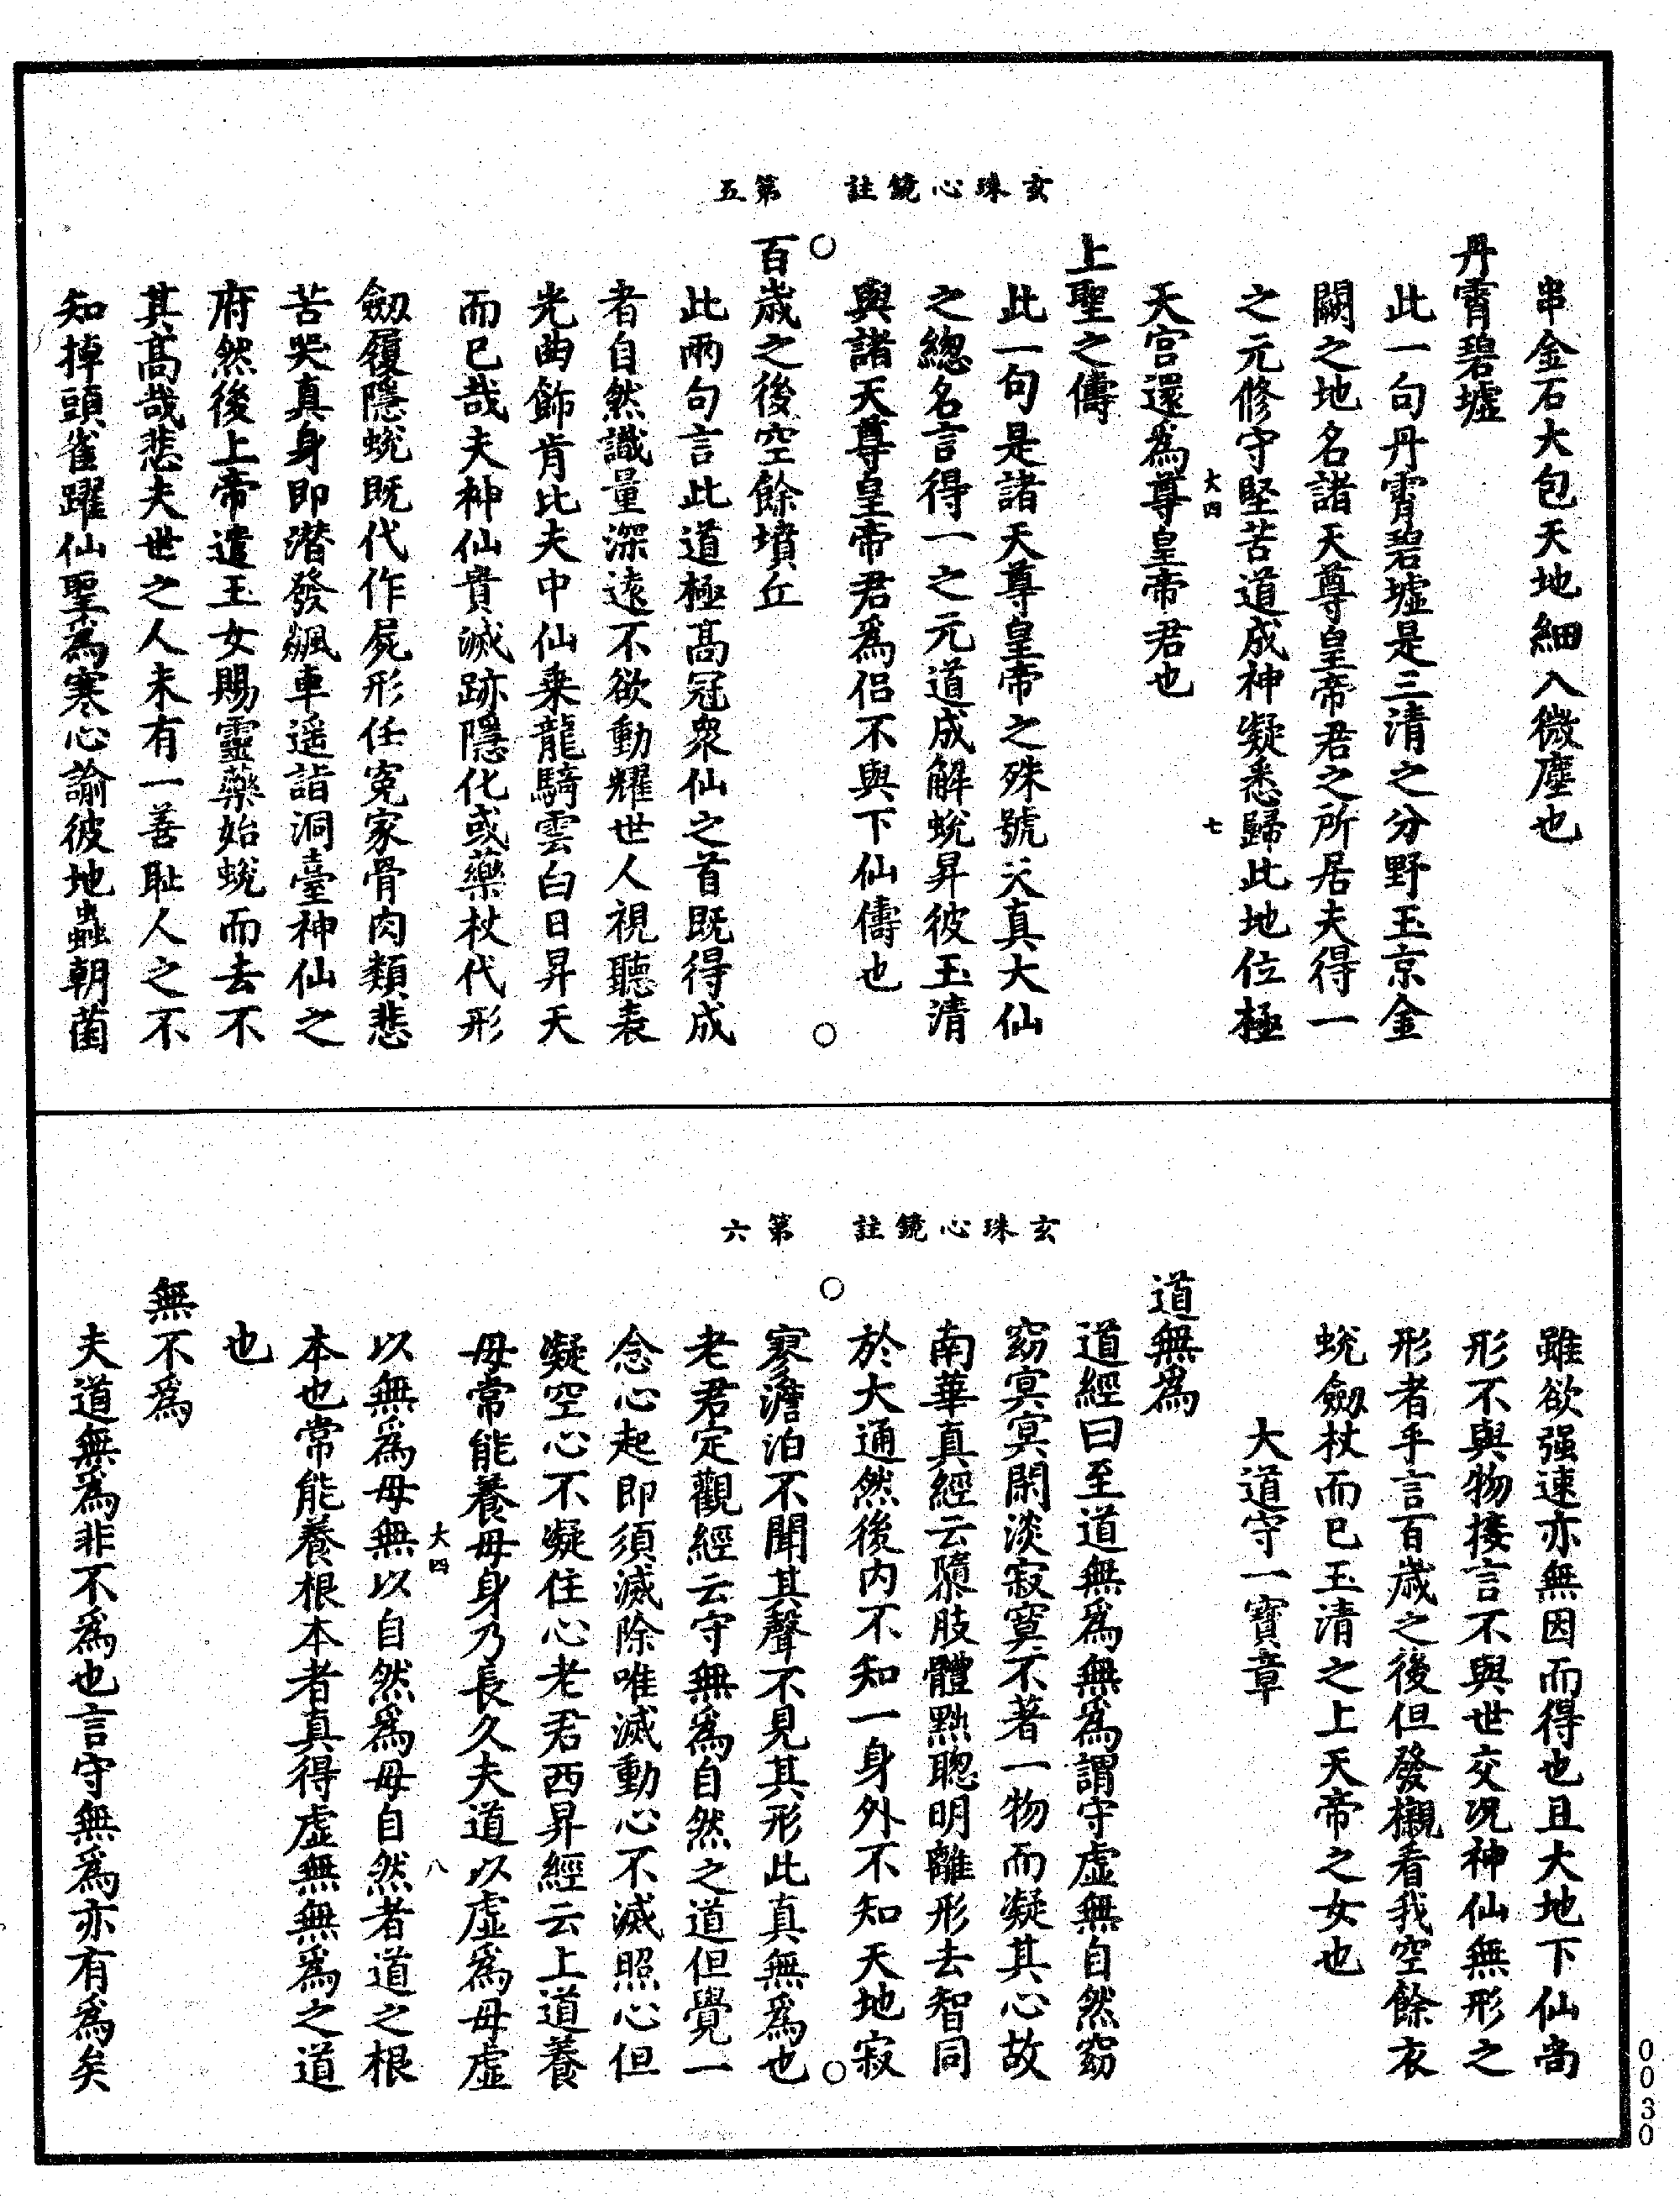 玄珠心鏡註　第五
串金石大包天地細入微塵也
丹霄碧墟
此一句丹霄碧墟是三清之分野玉京金
闕之地名諸天尊皇帝君之所居夫得一
之元修守堅苦道成神凝悉歸此地位極
大四　七
天宮還為尊皇帝君也
上聖之儔
此一句是諸天尊皇帝之殊號天真大仙
之總名言得一之元道成解蛻昇彼玉清
與諸天尊皇帝君為侣不與下仙儔也
百歲之後空餘墳丘
此兩句言此道極高冠衆仙之首既得成
者自然識量深遠不欲動耀世人視聽表
光曲飾肯比夫中仙乗龍騎雲白日昇天
而已哉夫神仙貴滅跡隱化或藥杖代形
劒履隱蛻既代作屍形任寃家骨肉類悲
苦哭真身即潜發飊車遥詣洞臺神仙之
府然後上帝遣玉女賜靈藥始蛻而去不
其高哉悲夫世之人未有一善恥人之不
知掉頭雀躍仙聖為寒心諭彼地蟲朝菌
玄珠心鏡註　第六
雖欲强速亦無因而得也且大地下仙尚
形不與物接言不與世交况神仙無形之
形者乎言百歲之後但發櫬看我空餘衣
蛻劒杖而已玉清之上天帝之女也
大道守一寶章
道無為
道經曰至道無為無為謂守虚無自然窈
窈冥冥閑淡寂寞不著一物而凝其心故
南華真經云隳肢體黜聰明離形去智同
於大通然後内不知一身外不知天地寂
寥澹泊不聞其聲不見其形此真無為也
老君定觀經云守無為自然之道但覺一
念心起即須滅除唯滅動心不滅照心但
凝空心不凝住心老君西昇經云上道養
母常能養母身乃長久夫道以虚為母虚
大四　八
以無為母無以自然為母自然者道之根
本也常能養根本者真得虚無無為之道
也
無不為
夫道無為非不為也言守無為亦有為矣
0030